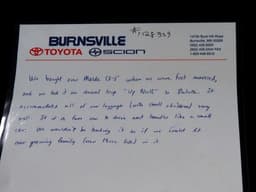 #1128939
BURNSVILLE
TOYOTA SCION
We bought our Mazda CX-5 when we were first married,
and we took it on annual trips "Up North" to Duluth. It
accommodates all of our luggage (with small children) very
well. It is a fun car to drive and handles like a small
car. We wouldn't be trading it in if we could fit
our growing family (now three kids) in it.